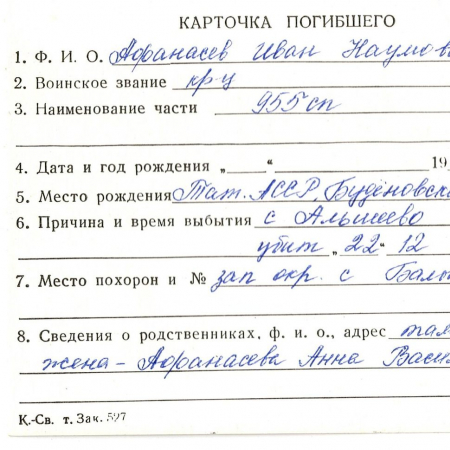 КАРТОЧКА ПОГИБШЕГО
1. Ф. И. О. Афанасев Иван Наумов
2. Воинское звание кр-ц
3. Наименование части 955 сп
4. Дата и год рождения „ “ 19
5. Место рождения Тат. АССР, Будёновск
6. Причина и время выбытия с Альшеево
убит „22“ 12
7. Место похорон и № зап окр. с Баль
8. Сведения о родственниках, ф. и. о., адрес там
жена – Афанасева Анна Васи
К.-Св. т. Зак. 597